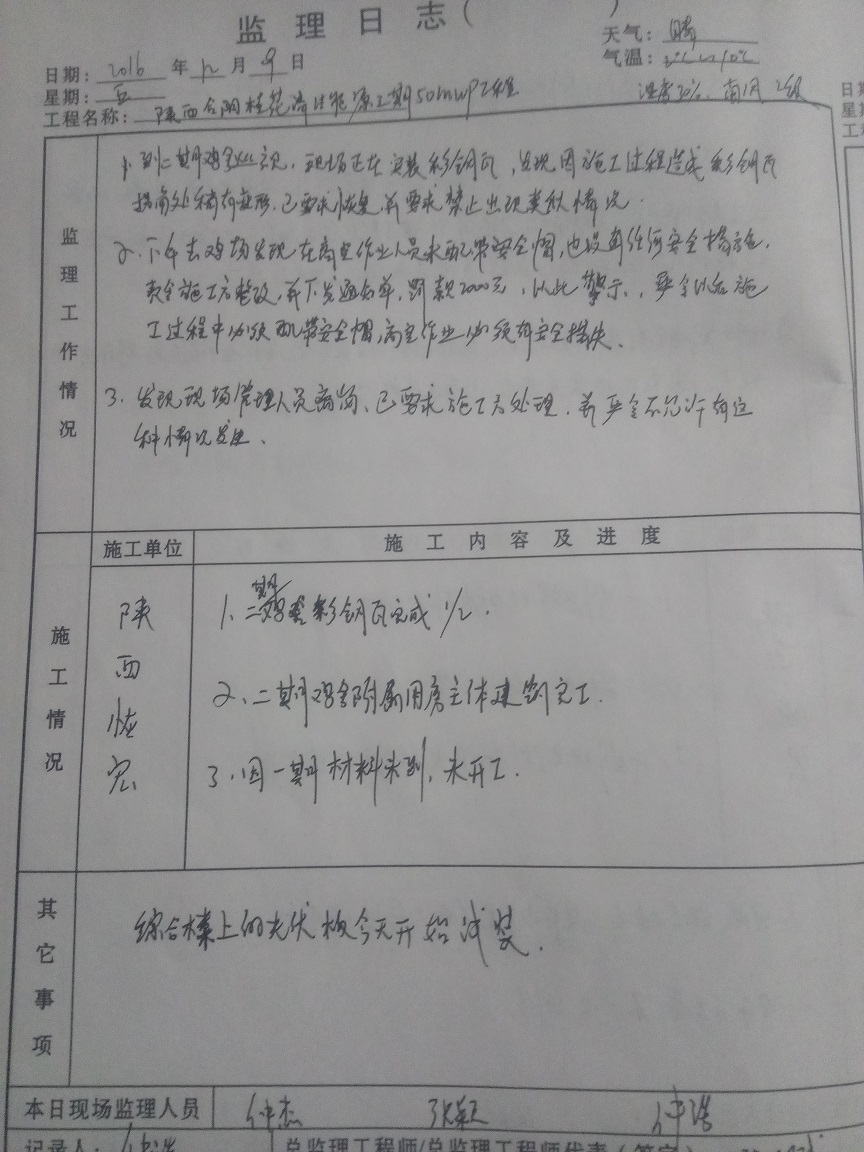 监理日志( )
天气: 晴
日期: 2016 年 12 月 9 日
气温:
星期: 五
湿度30%、南风 2级
工程名称: 陕西合阳桂花 能源二期50mwp工程
监理工作情况
1. 到二期鸡舍 现场正在安装彩钢瓦, 发现因施工过程造成彩钢瓦
搭角处稍有变形, 已要求恢复, 并要求禁止出现类似情况.
2. 下午去鸡场发现在高空作业人员未配带安全帽, 也没有任何安全措施,
责令施工方整改, 并下发通知单, 罚款2000元, 以此警示, 严令以后施
工过程中必须配带安全帽, 高空作业必须有安全措失.
3. 发现现场管理人员离岗、已要求施工方处理. 并严令不允许有这
种情况发生.
施工情况
施工单位
施工内容及进度
陕西恢宏
1. 二期鸡舍彩钢瓦完成 1/2.
2、二期鸡舍附属用房主体建筑完工.
3、因一期材料未到, 未开工.
其它事项
综合楼上的光伏板今天开始安装.
本日现场监理人员 仲杰 张颖 仲浩
记录人: 仲浩
总监理工程师/总监理工程师代表(签字)